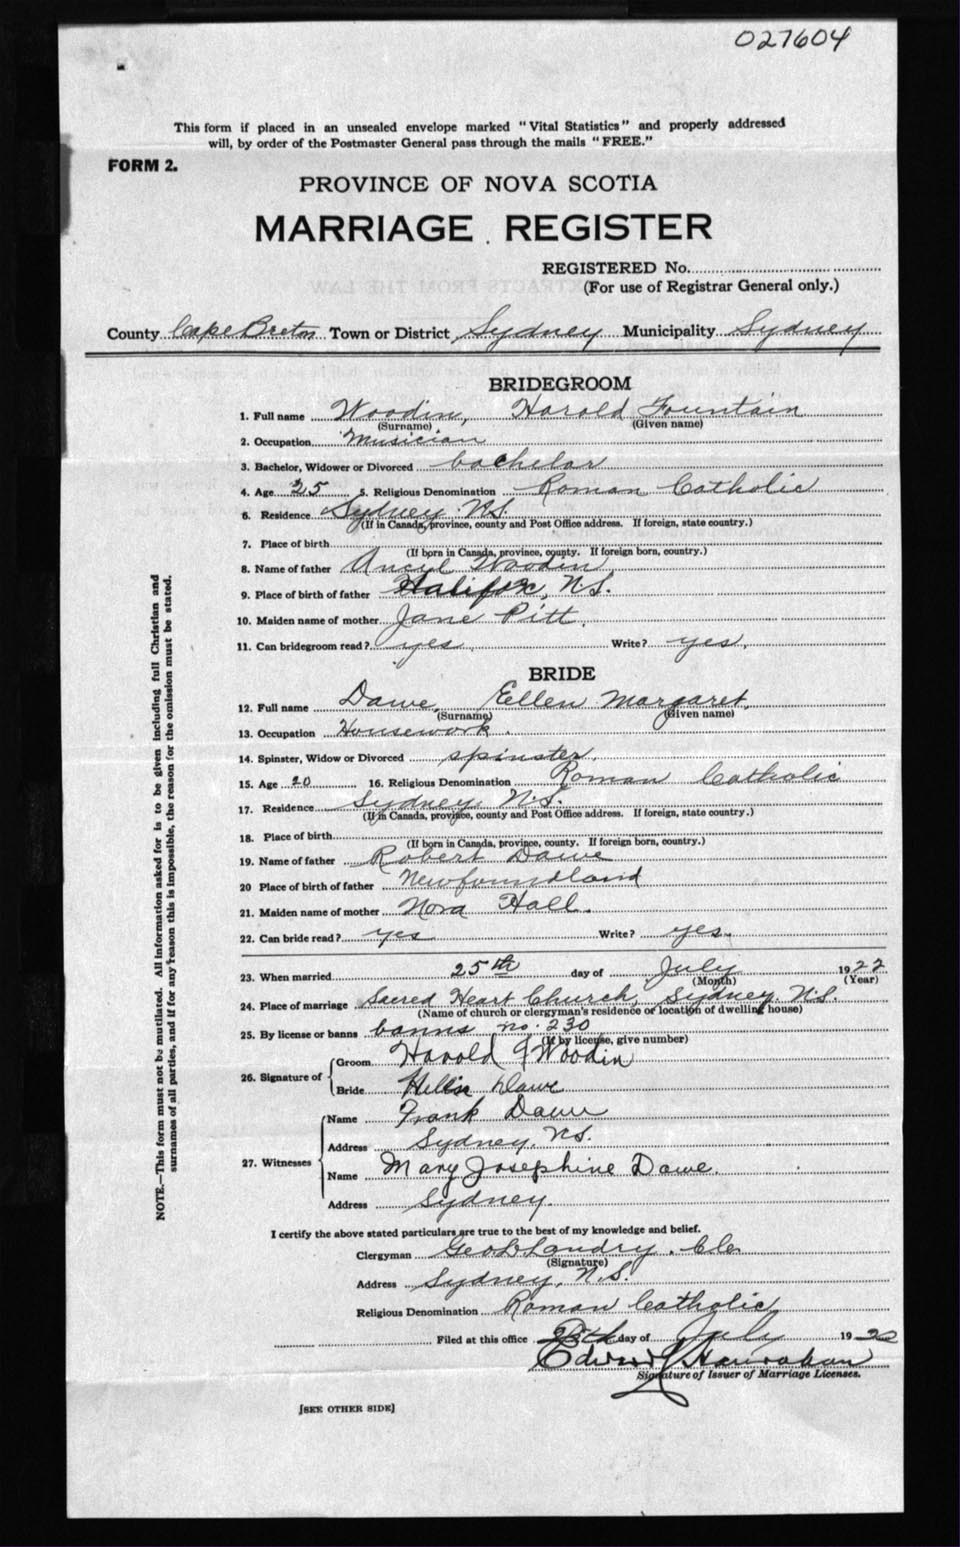 027604
This form if placed in an unsealed envelope marked "Vital Statistics" and properly addressed
will, by order of the Postmaster General pass through the mails "FREE."
FORM 2.
PROVINCE OF NOVA SCOTIA
MARRIAGE REGISTER
REGISTERED No.
(For use of Registrar General only.)
County Cape Breton Town or District Sydney Municipality Sydney
BRIDEGROOM
1. Full name Woodin, Harold Fountain
(Surname) (Given name)
2. Occupation Musician
3. Bachelor, Widower or Divorced bachelor
4. Age 25 5. Religious Denomination Roman Catholic
6. Residence Sydney N.S.
(If in Canada, province, county and Post Office address. If foreign, state country.)
7. Place of birth
(If born in Canada, province, county. If foreign born, country.)
8. Name of father Ancyl Woodin
9. Place of birth of father Halifax, N.S.
10. Maiden name of mother Jane Pitt.
11. Can bridegroom read? yes, Write? yes,
BRIDE
12. Full name Dawe, Eellen Margaret.
(Surname) (Given name)
13. Occupation Housework.
14. Spinster, Widow or Divorced spinster.
15. Age 20 16. Religious Denomination Roman Catholic
17. Residence Sydney, N.S.
(If in Canada, province, county and Post Office address. If foreign, state country.)
18. Place of birth
(If born in Canada, province, county. If foreign born, country.)
19. Name of father Robert Dawe
20 Place of birth of father Newfoundland
21. Maiden name of mother Nora Hall.
22. Can bride read? yes Write? yes.
23. When married 25th day of July 1922
(Month) (Year)
24. Place of marriage Sacred Heart Church, Sydney N.S.
(Name of church or clergyman's residence or location of dwelling house)
25. By license or banns banns no. 230
(If by license, give number)
26. Signature of Groom Harold F Woodin
Bride Dawe
27. Witnesses Name Frank Dawe
Address Sydney, N.S.
Name Mary Josephine Dawe.
Address Sydney.
I certify the above stated particulars are true to the best of my knowledge and belief.
Clergyman Geo Landry.
(Signature)
Address Sydney, N.S.
Religious Denomination Roman Catholic
Filed at this office day of July 19
Edward Hanrahan
Signature of Issuer of Marriage Licenses.
[SEE OTHER SIDE]
NOTE.—This form must not be mutilated. All information asked for is to be given including full Christian and
surnames of all parties, and if for any reason this is impossible, the reason for the omission must be stated.